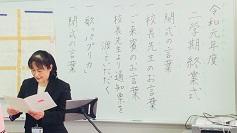 令和元年度
二学期終業式
一 開式の言葉
一 校長先生のお言葉
一 ご来賓のお言葉
一 校長先生より通知票を
渡していただく
一 歌 パプリカ
一 閉式の言葉